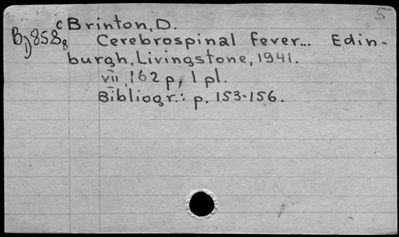 5
cBrinton, D.
Bj858g Cerebrospinal fever... Edin-
burgh, Livingstone, 1941.
vii, 162 p, 1 pl.
Bibliogr.: p. 153-156.